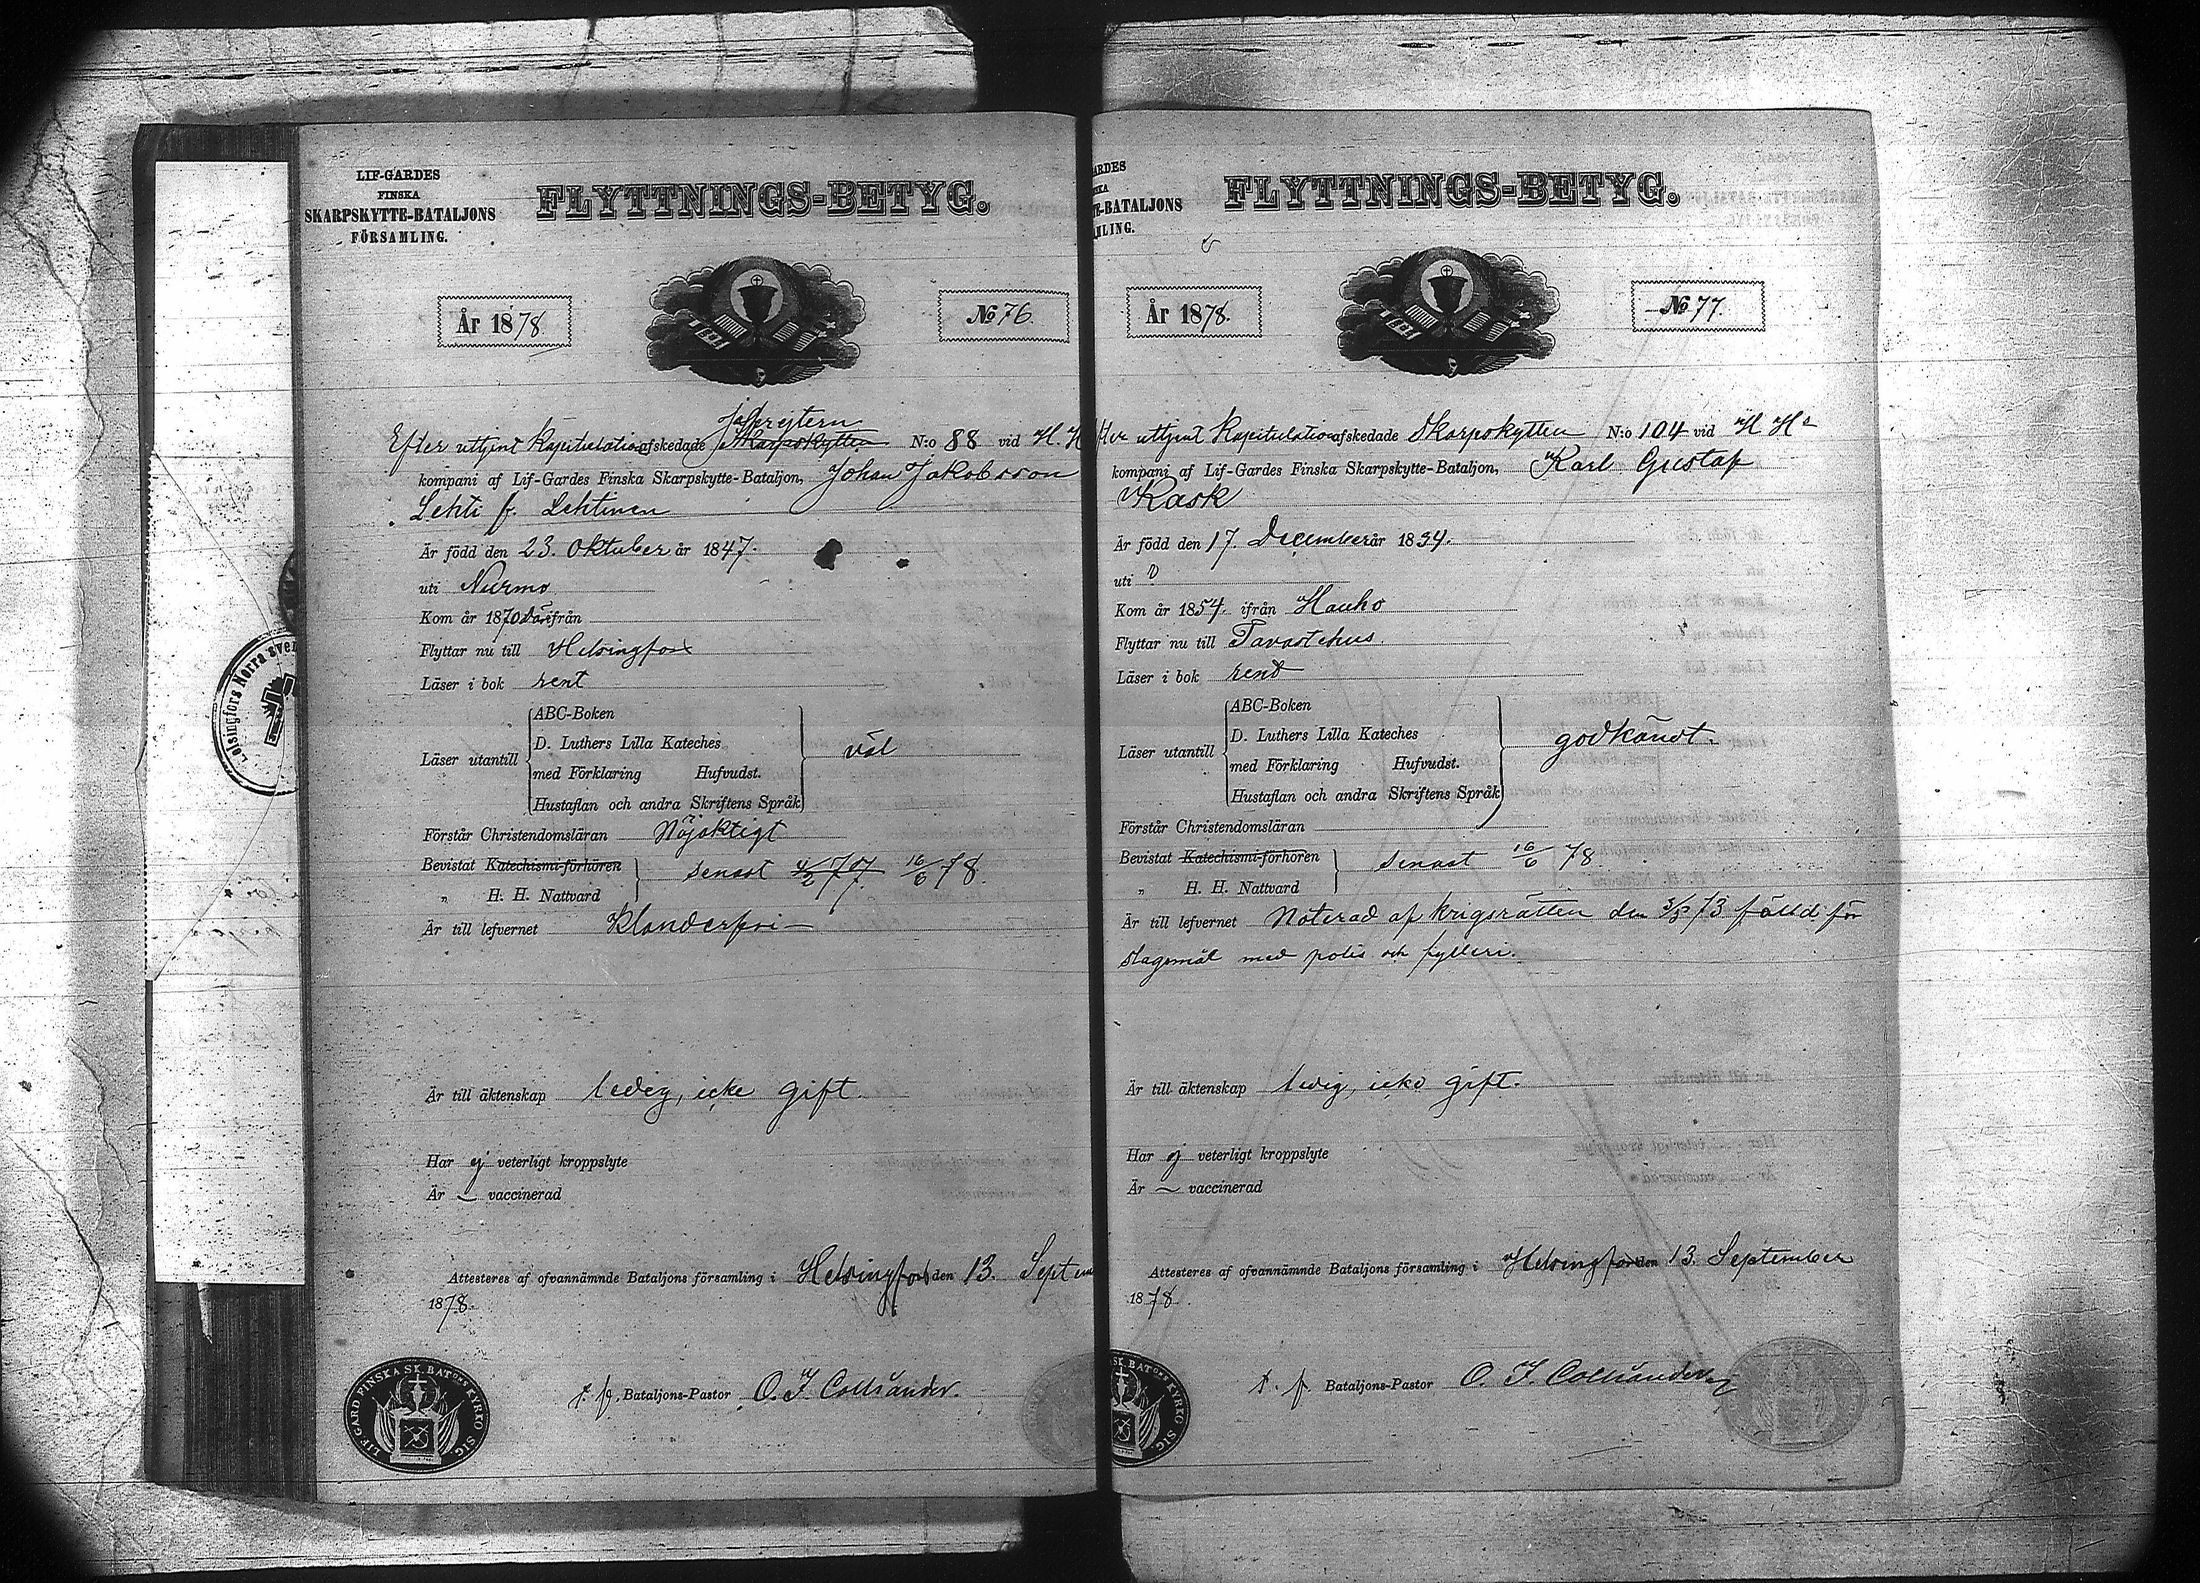 LIF-GARDES
FINSKA
SKARPSKYTTE-BATALJONS
FÖRSAMLING.
FLYTTNINGS-BETYG.
År 1878
No 76.
Jefrejtern
Efter uttjent Kapitulation afskedade Skarpskytten N:o 88 vid H. H
kompani af Lif-Gardes Finska Skarpskytte-Bataljon, Johan Jakobsson
Lehti f. Lehtinen
Är född den 23. Oktober år 1847.
uti Nurmo
Kom år 1870 därifrån
Flyttar nu till Helsingfors
Läser i bok rent
ABC-Boken
D. Luthers Lilla Kateches
Läser utantill med Förklaring Hufvudst. väl
Hustaflan och andra Skriftens Språk
Förstår Christendomsläran Nöjaktigt
Bevistat Katechismi-förhören senast 4/2 77 16/6 78.
„ H. H. Nattvard
Är till lefvernet Klanderfri
Är till äktenskap ledig, icke gift.
Har ej veterligt kroppslyte
Är — vaccinerad
Attesteres af ofvannämnde Bataljons församling i Helsingfors den 13. Septem
1878.
t. f. Bataljons-Pastor O. I. Colliander.
LIF. GARD. FINSKA SK. BATons KYRKO SIG.
Helsingfors Norra sven
ARDES
SKA
TE-BATALJONS
MLING.
FLYTTNINGS-BETYG.
År 1878.
No 77.
fter uttjent Kapitulation afskedade Skarpskytten N:o 104 vid H Hs
kompani af Lif-Gardes Finska Skarpskytte-Bataljon, Karl Gustaf
Kask
Är född den 17. December år 1834.
uti ?
Kom år 1854. ifrån Hauho
Flyttar nu till Tavastehus.
Läser i bok rent
ABC-Boken
D. Luthers Lilla Kateches
Läser utantill med Förklaring Hufvudst. godkändt.
Hustaflan och andra Skriftens Språk
Förstår Christendomsläran
Bevistat Katechismi-förhören senast 16/6 78.
„ H. H. Nattvard
Är till lefvernet Noterad af krigsrätten den 3/5 73 fälld för
slagsmål med polis och fylleri.
Är till äktenskap ledig, icke gift.
Har ej veterligt kroppslyte
Är — vaccinerad
Attesteres af ofvannämnde Bataljons församling i Helsingfors den 13. September
1878.
t. f. Bataljons-Pastor O. I. Colliander
SK. BATons KYRKO SIG.